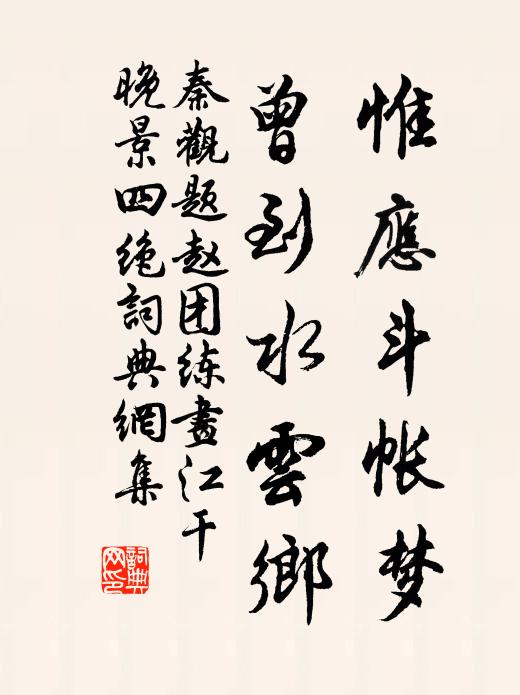 惟應斗帐梦
曾到水雲鄉
秦觀题赵团练畫江干
晚景四绝詞典網集
詞典网印